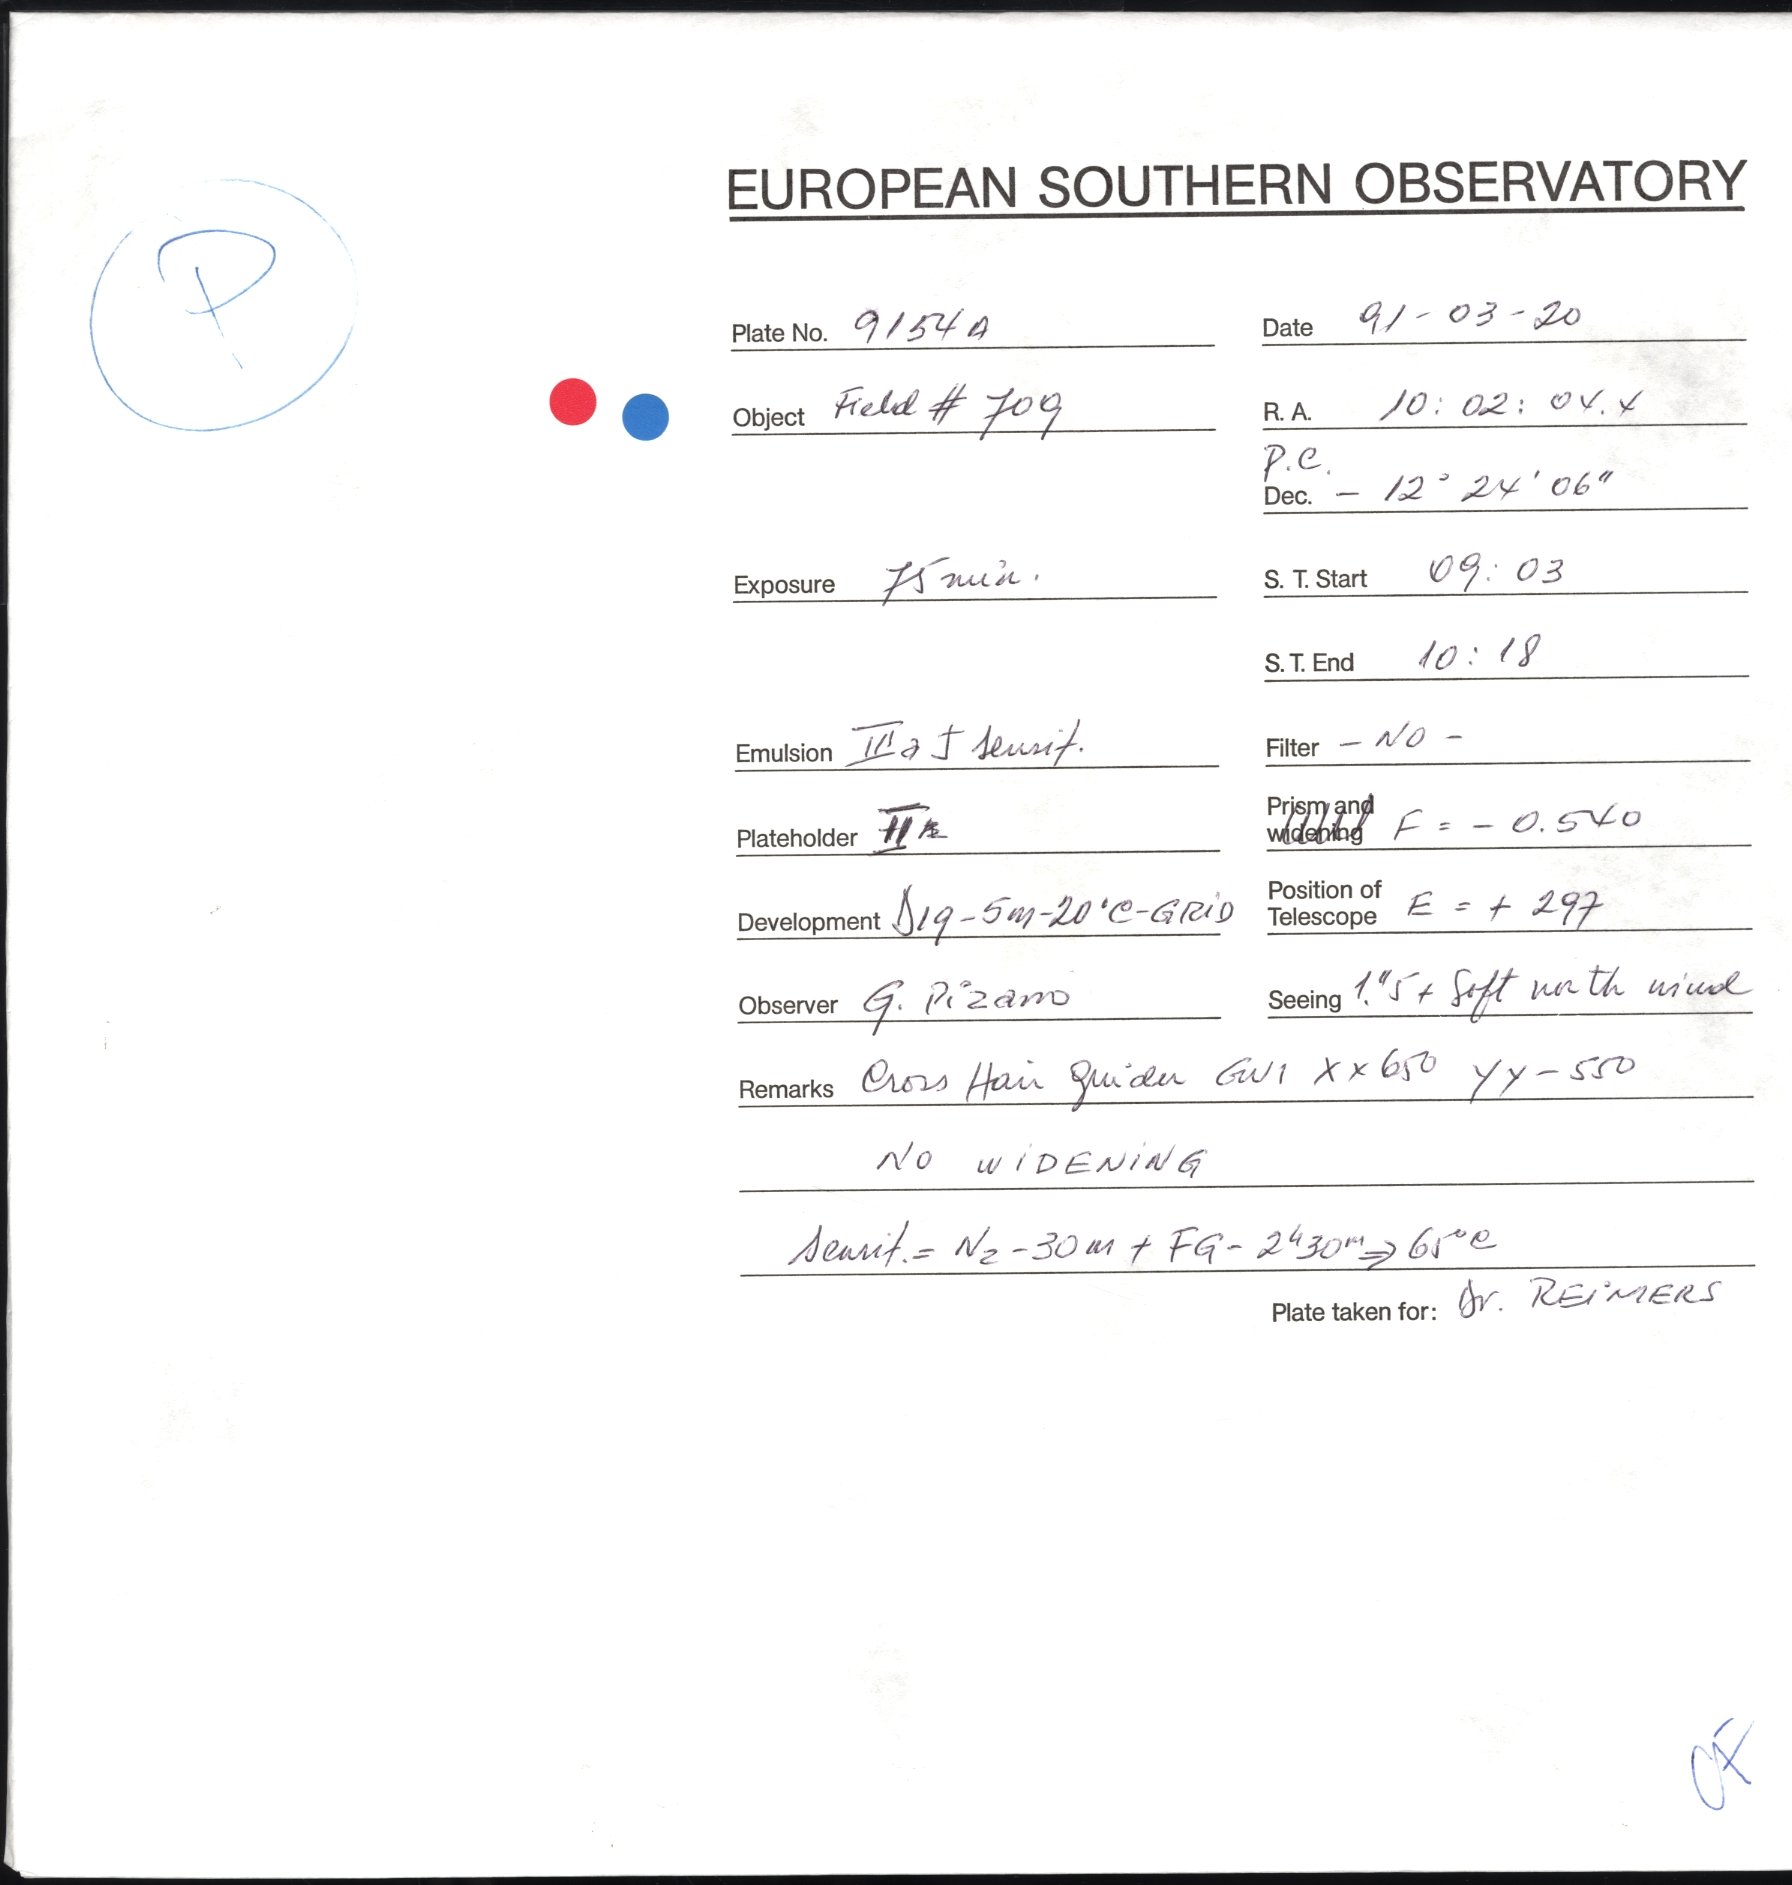 EUROPEAN SOUTHERN OBSERVATORY
P
Plate No. 9154A Date 91-03-20
Object Field # 709 R. A. 10: 02: 04.4
P.C.
Dec. - 12° 24' 06"
Exposure 75 min. S. T. Start 09: 03
S. T. End 10: 18
Emulsion III a J sensit. Filter - NO -
Plateholder II
Prism and
widening F = - 0.540
Development D19-5m-20°C-GRID Position of
Telescope E = + 297
Observer G. Pizarro Seeing 1."5 + Soft north wind
Remarks Cross Hair guider GW1 XX 650 YY-550
NO WIDENING
Sensit. = N2-30m + FG- 2h30m => 65°C
Plate taken for: Dr. REIMERS